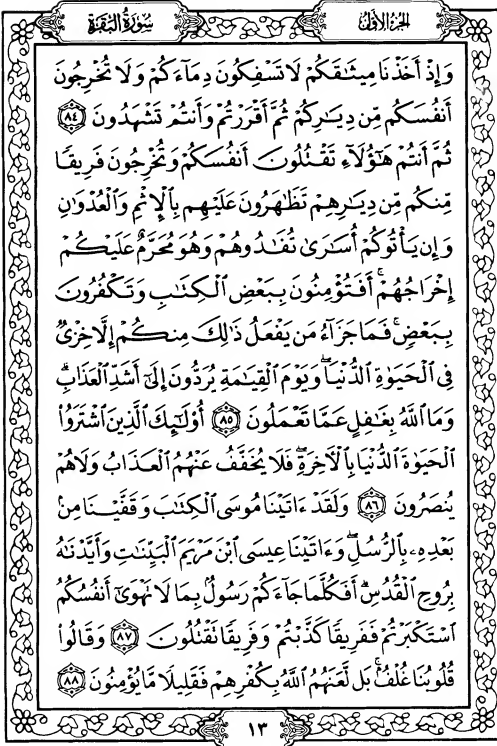 سُورَةُ الْبَقَرَةِ
الجُزْءُ الأَوَّلُ
وَإِذْ أَخَذْنَا مِيثَٰقَكُمْ لَا تَسْفِكُونَ دِمَآءَكُمْ وَلَا تُخْرِجُونَ
أَنفُسَكُم مِّن دِيَٰرِكُمْ ثُمَّ أَقْرَرْتُمْ وَأَنتُمْ تَشْهَدُونَ ٨٤
ثُمَّ أَنتُمْ هَٰٓؤُلَآءِ تَقْتُلُونَ أَنفُسَكُمْ وَتُخْرِجُونَ فَرِيقًا
مِّنكُم مِّن دِيَٰرِهِمْ تَظَٰهَرُونَ عَلَيْهِم بِٱلْإِثْمِ وَٱلْعُدْوَٰنِ
وَإِن يَأْتُوكُمْ أُسَٰرَىٰ تُفَٰدُوهُمْ وَهُوَ مُحَرَّمٌ عَلَيْكُمْ
إِخْرَاجُهُمْ ۚ أَفَتُؤْمِنُونَ بِبَعْضِ ٱلْكِتَٰبِ وَتَكْفُرُونَ
بِبَعْضٍ ۚ فَمَا جَزَآءُ مَن يَفْعَلُ ذَٰلِكَ مِنكُمْ إِلَّا خِزْىٌ
فِى ٱلْحَيَوٰةِ ٱلدُّنْيَا ۖ وَيَوْمَ ٱلْقِيَٰمَةِ يُرَدُّونَ إِلَىٰٓ أَشَدِّ ٱلْعَذَابِ ۗ
وَمَا ٱللَّهُ بِغَٰفِلٍ عَمَّا تَعْمَلُونَ ٨٥ أُو۟لَٰٓئِكَ ٱلَّذِينَ ٱشْتَرَوُا۟
ٱلْحَيَوٰةَ ٱلدُّنْيَا بِٱلْءَاخِرَةِ ۖ فَلَا يُخَفَّفُ عَنْهُمُ ٱلْعَذَابُ وَلَا هُمْ
يُنصَرُونَ ٨٦ وَلَقَدْ ءَاتَيْنَا مُوسَى ٱلْكِتَٰبَ وَقَفَّيْنَا مِنۢ
بَعْدِهِۦ بِٱلرُّسُلِ ۖ وَءَاتَيْنَا عِيسَى ٱبْنَ مَرْيَمَ ٱلْبَيِّنَٰتِ وَأَيَّدْنَٰهُ
بِرُوحِ ٱلْقُدُسِ ۗ أَفَكُلَّمَا جَآءَكُمْ رَسُولٌۢ بِمَا لَا تَهْوَىٰٓ أَنفُسُكُمُ
ٱسْتَكْبَرْتُمْ فَفَرِيقًا كَذَّبْتُمْ وَفَرِيقًا تَقْتُلُونَ ٨٧ وَقَالُوا۟
قُلُوبُنَا غُلْفٌۢ ۚ بَل لَّعَنَهُمُ ٱللَّهُ بِكُفْرِهِمْ فَقَلِيلًا مَّا يُؤْمِنُونَ ٨٨
١٣